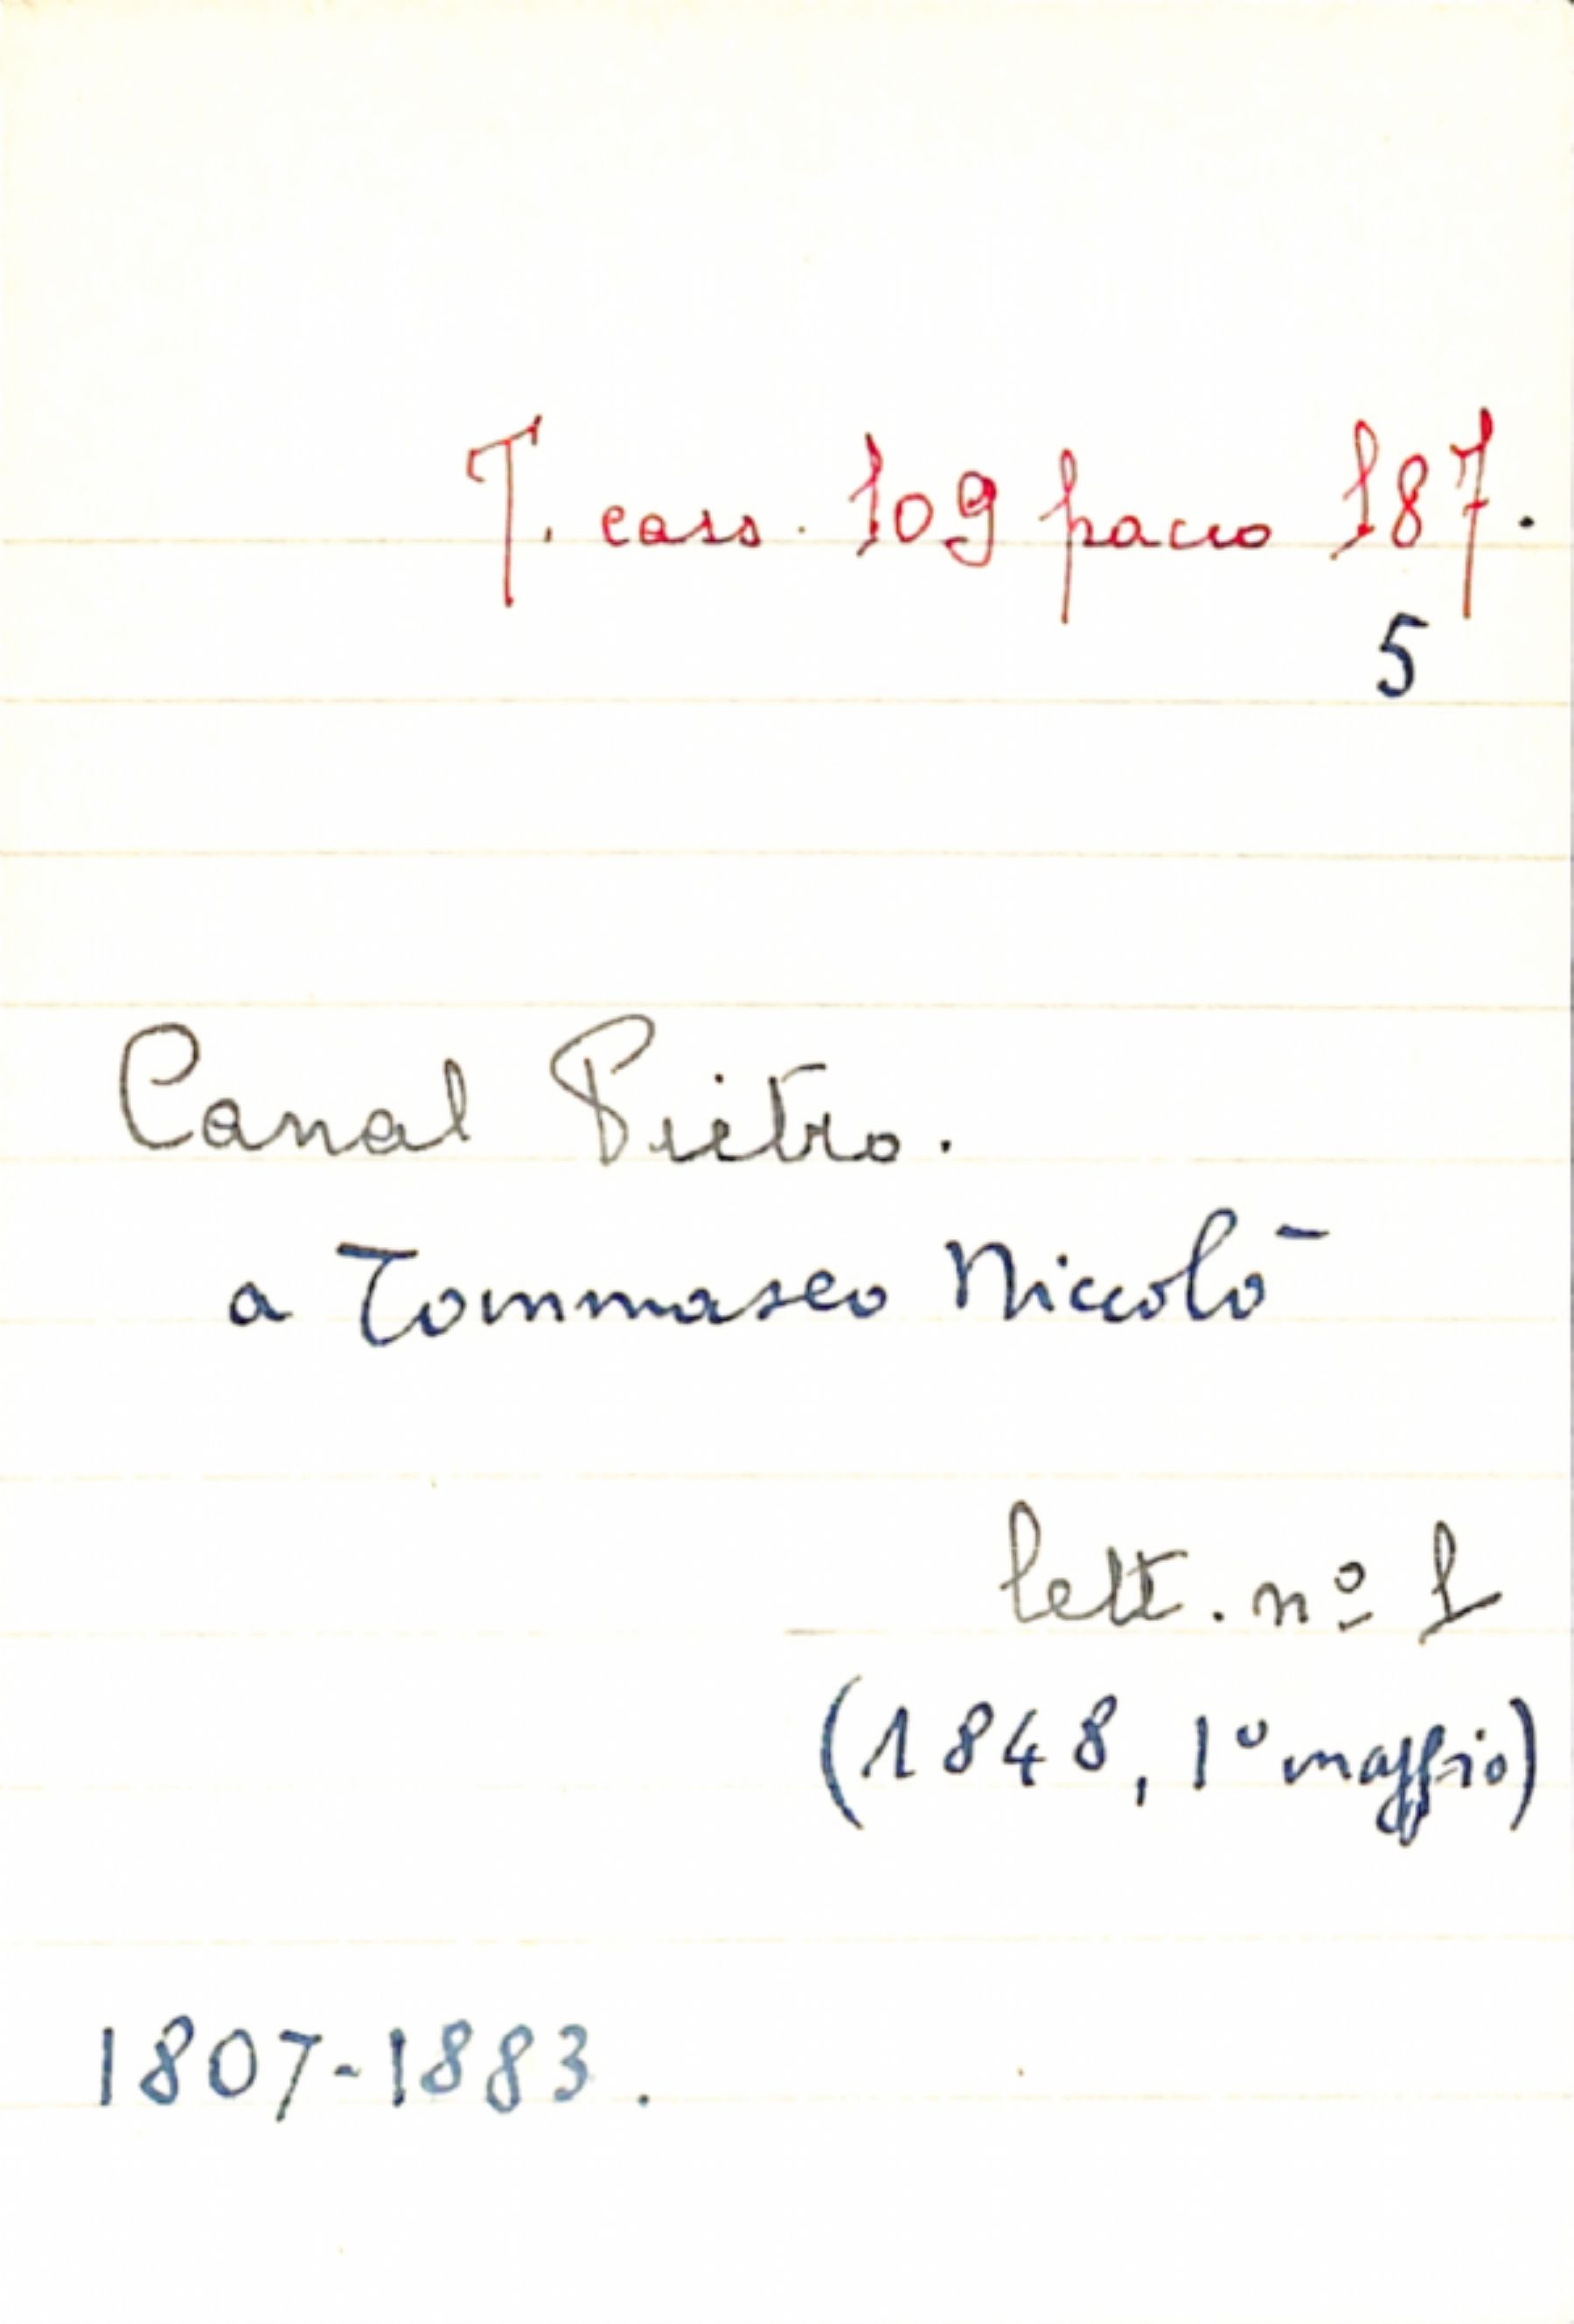 T. cass. 109 pacco 187.
5
Canal Pietro.
a Tommaseo Niccolò
lett. nº 1
(1848, 1º maggio)
1807-1883.